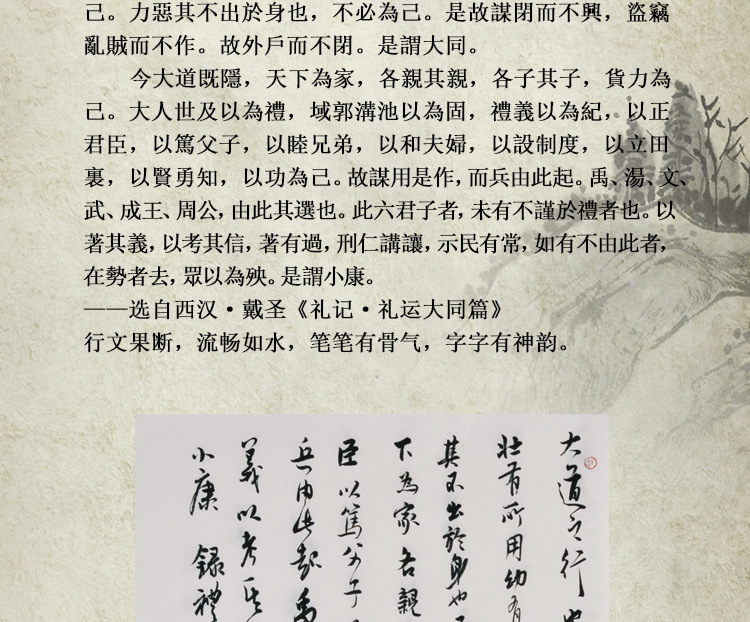 己。力惡其不出於身也，不必為己。是故謀閉而不興，盜竊
亂賊而不作。故外戶而不閉。是謂大同。
今大道既隱，天下為家，各親其親，各子其子，貨力為
己。大人世及以為禮，域郭溝池以為固，禮義以為紀，以正
君臣，以篤父子，以睦兄弟，以和夫婦，以設制度，以立田
裏，以賢勇知，以功為己。故謀用是作，而兵由此起。禹、湯、文、
武、成王、周公，由此其選也。此六君子者，未有不謹於禮者也。以
著其義，以考其信，著有過，刑仁講讓，示民有常，如有不由此者，
在勢者去，眾以為殃。是謂小康。
——选自西汉·戴圣《礼记·礼运大同篇》
行文果断，流畅如水，笔笔有骨气，字字有神韵。
大道之行也
壯有所用幼有
其不出於身也
下為家各親
臣以篤父子
兵由此起禹
義以考其
小康 録禮